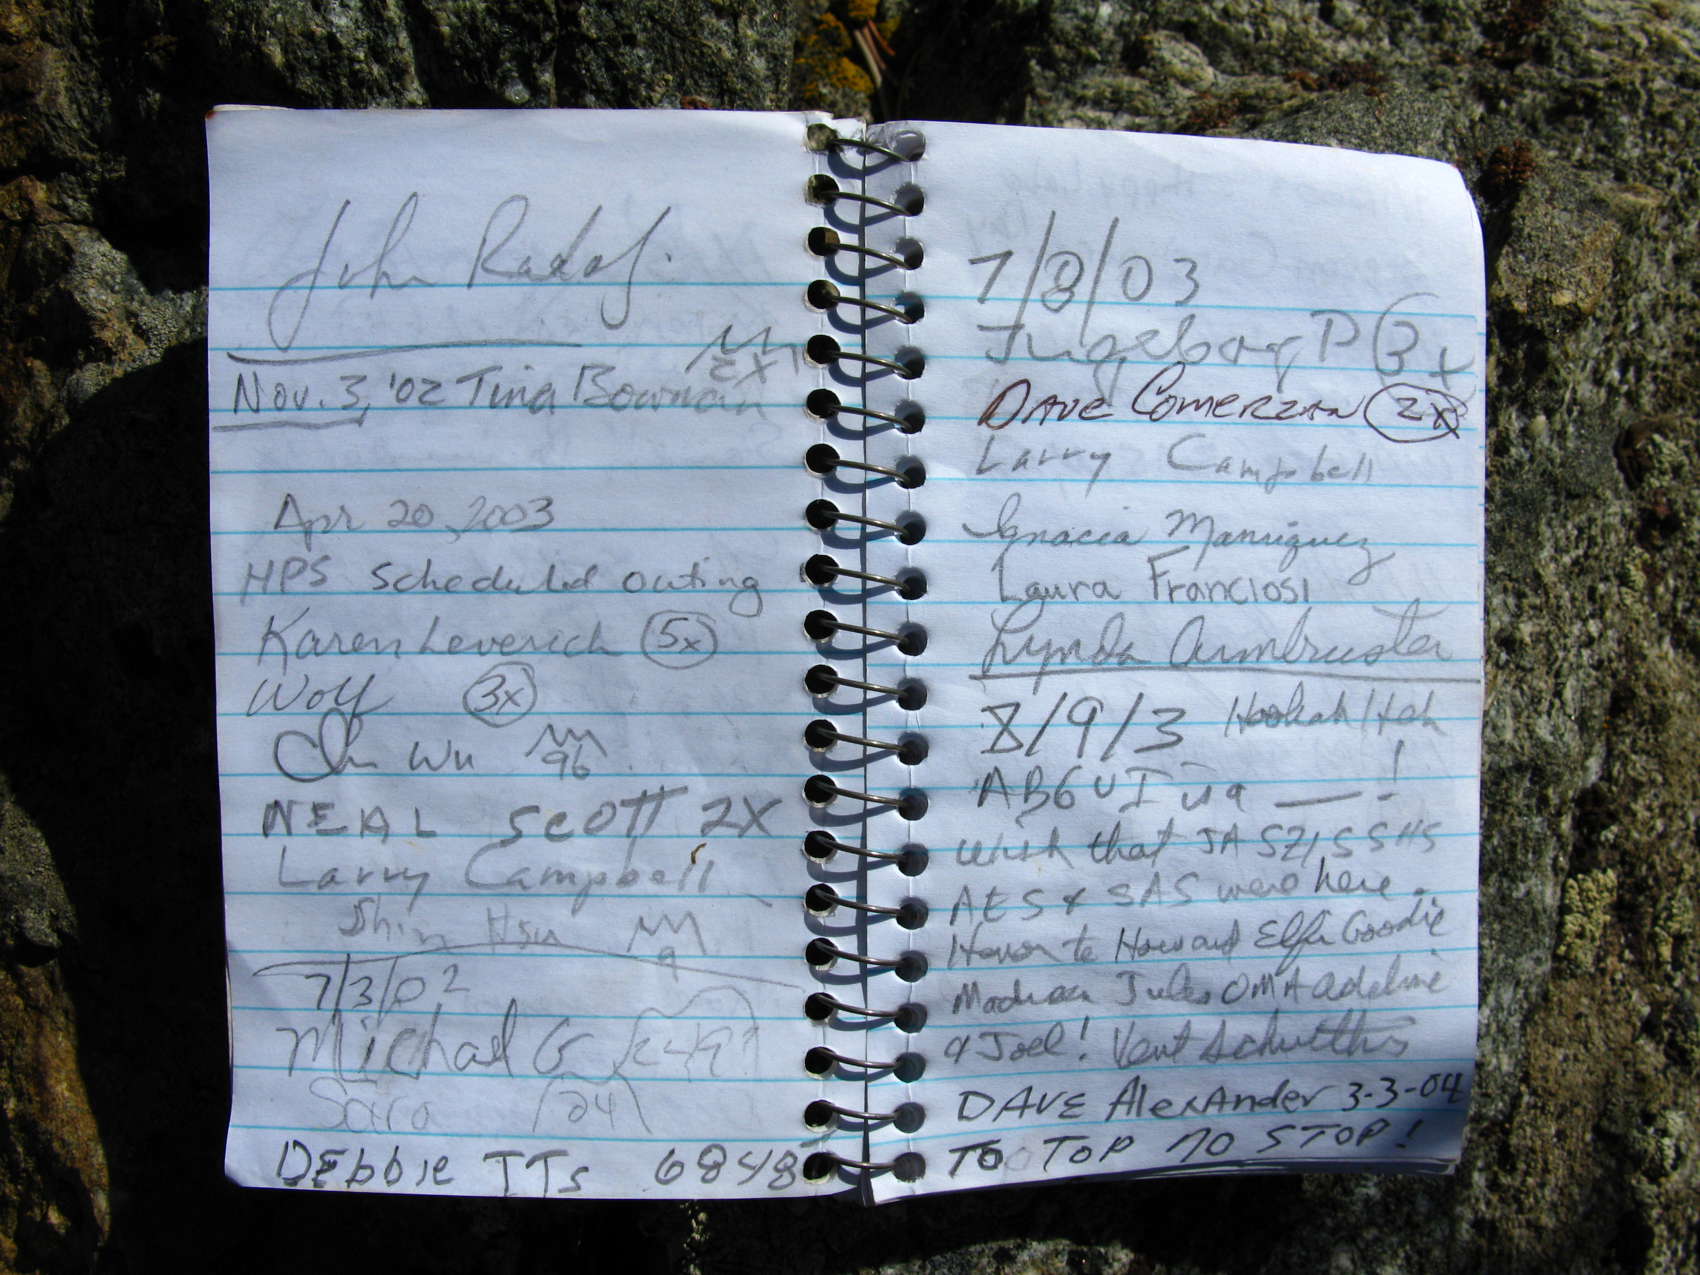 John Radof.
EX
Nov. 3, '02 Tina Bowman
Apr 20, 2003
HPS Scheduled outing
Karen Leverich 5x
Wolf 3x
Wu 96
NEAL SCOTT 2X
Larry Campbell
Shin Hsu 9
7/3/02
Michael G
Sara 24
DEbbie TTs 6848
7/8/03
Ingeborg P 3x
DAVE COMERZAN 2x
Larry Campbell
Ignacia Manriquez
Laura Franciosi
Lynda Armbruster
8/9/3
wish that JA SZ
AES & SAS were here.
Honor to Howard Elfi Goodie
Jules OMA Adeline
& Joel!
DAVE AlexAnder 3-3-04
TO TOP NO STOP!